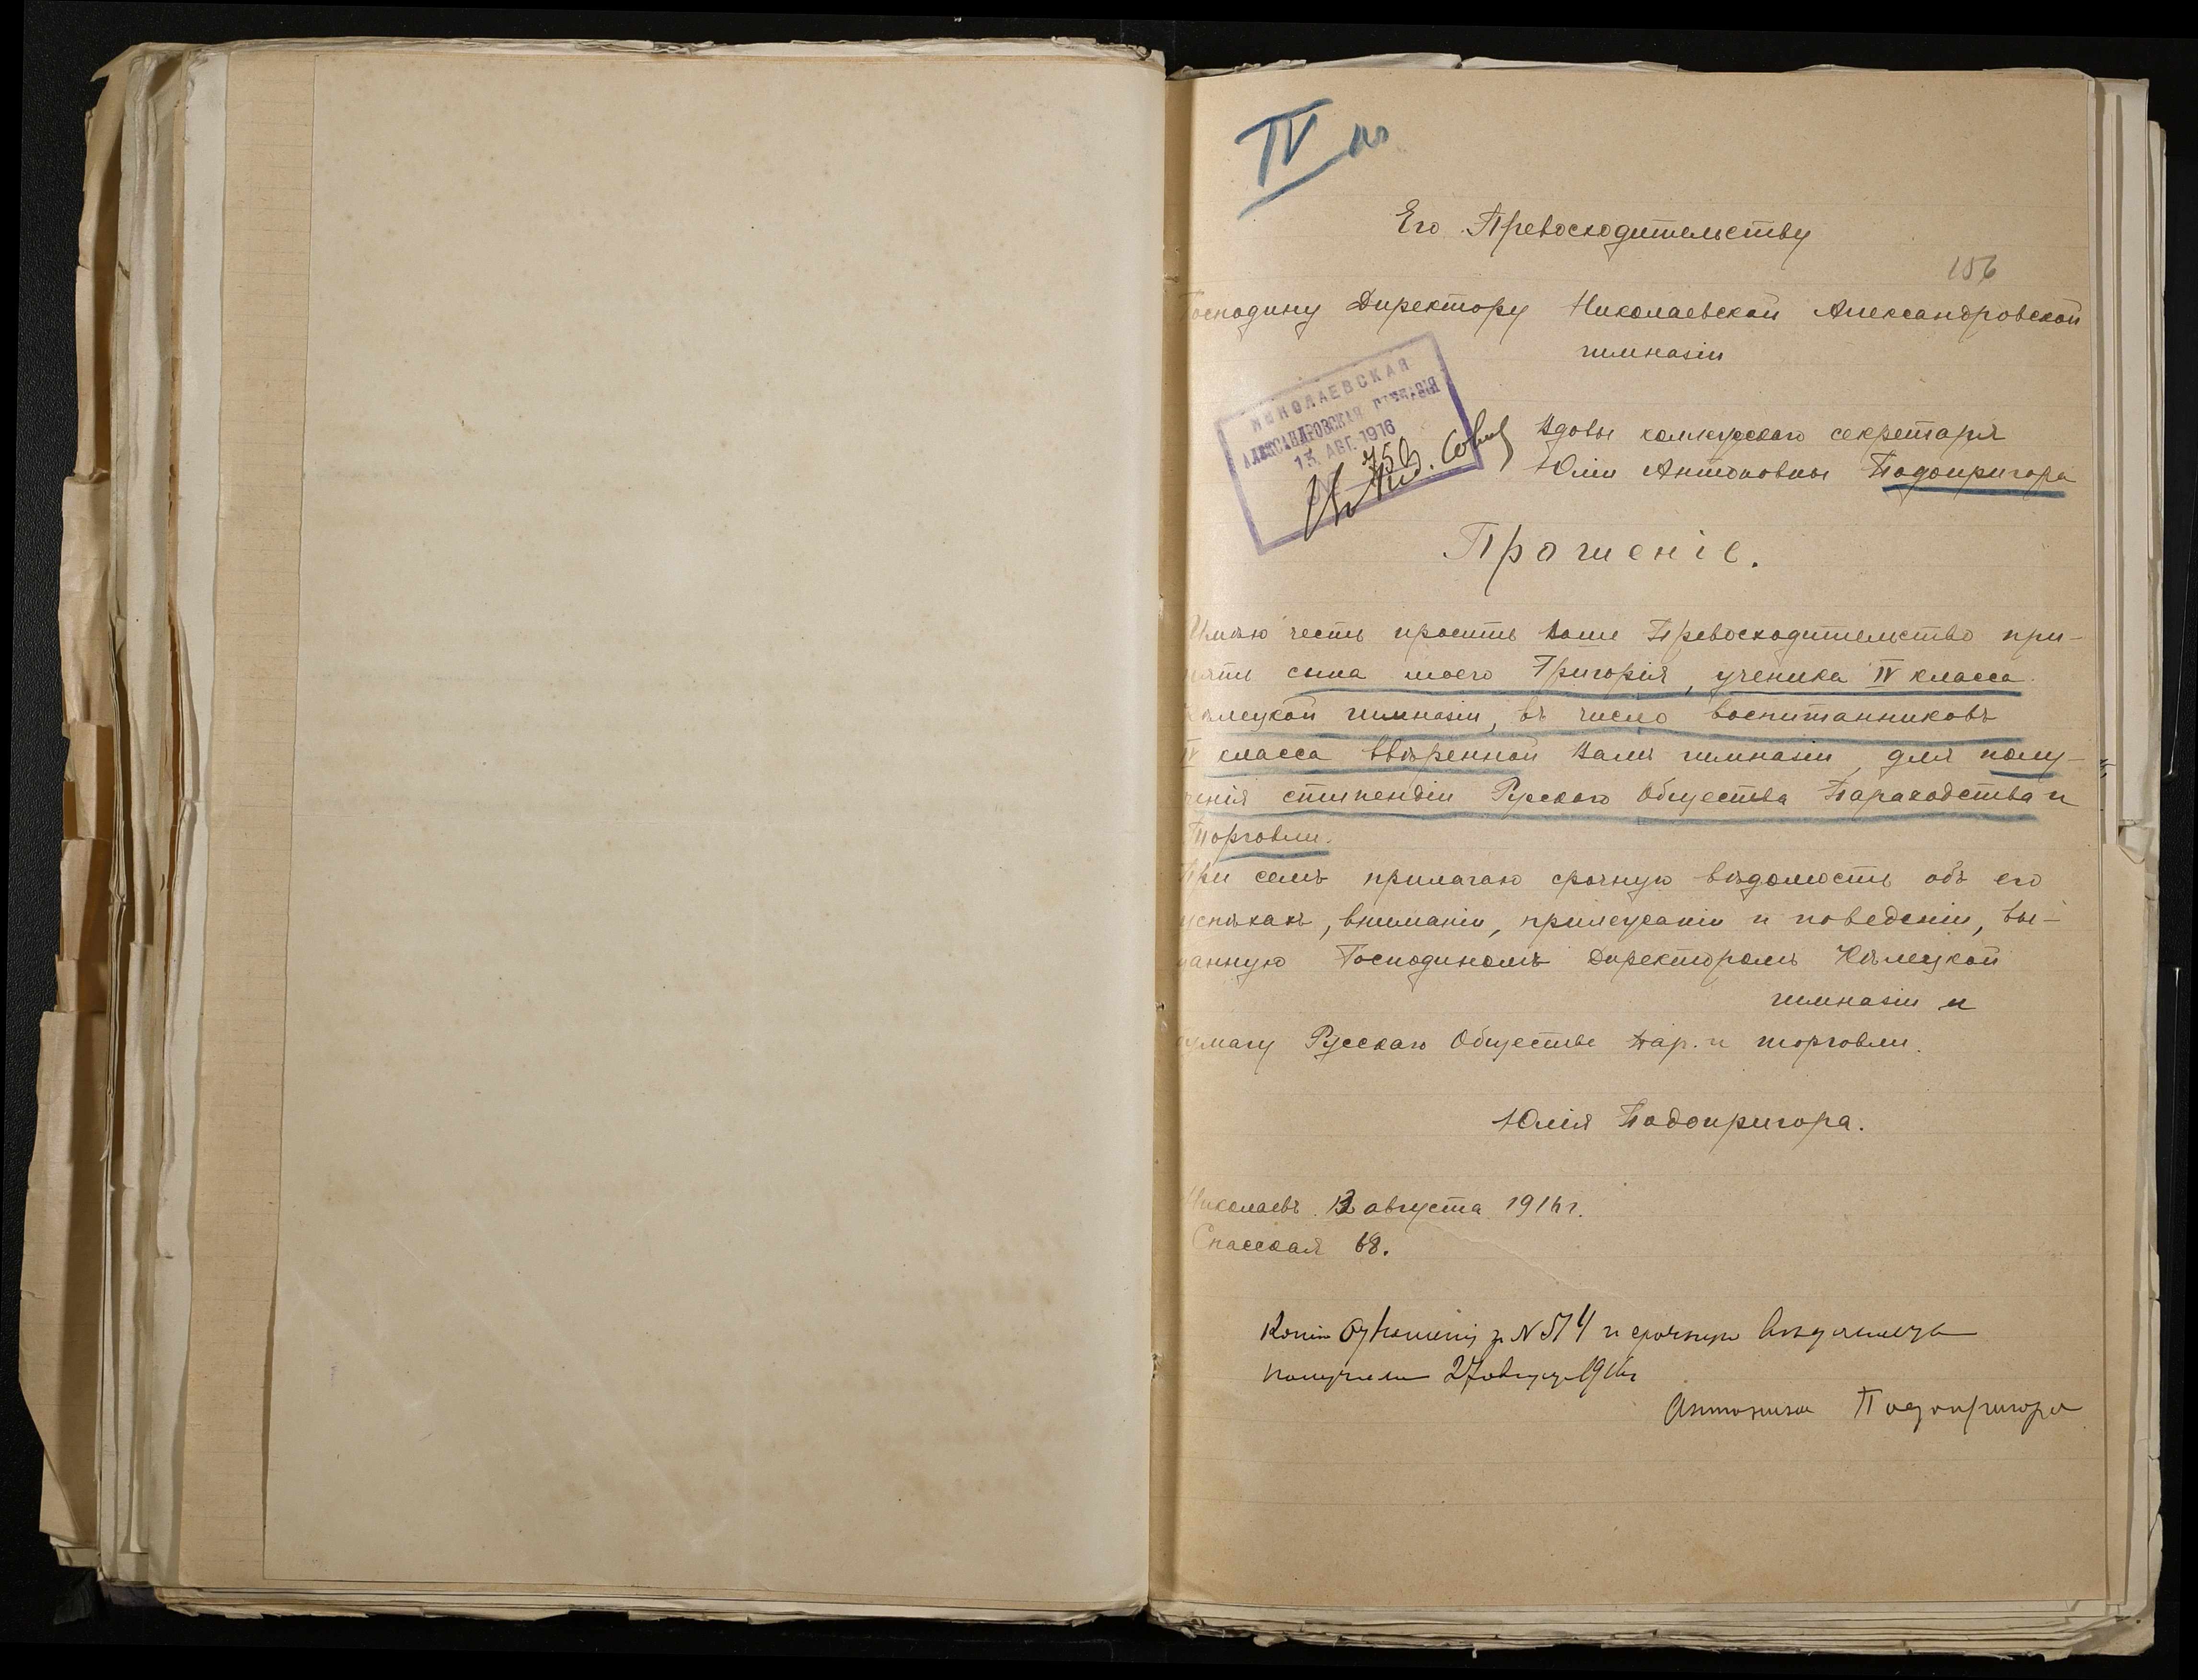 IV кл
Его Превосходительству
156
Господину Директору Николаевской Александровской
гимназіи
НИКОЛАЕВСКАЯ
АЛЕКСАНДРОВСКАЯ ГИМНАЗІЯ
13. АВГ. 1916
Вдовы коллежскаго секретаря
Юліи Антоновны Подопригора
Прошеніе.
Имѣю честь просить Ваше Превосходительство при-
нять сына моего Григорія, ученика IV класса
Кѣлецкой гимназіи, въ число воспитанниковъ
IV класса ввѣренной Вамъ гимназіи, для полу-
ченія стипендіи Русскаго Общества Пароходства и
Торговли.
При семъ прилагаю срочную вѣдомость объ его
успѣхахъ, вниманіи, прилежаніи и поведеніи, вы-
данную Господиномъ Директоромъ Кѣлецкой
гимназіи и
бумагу Русскаго Общества Пар. и торговли.
Юлія Подопригора.
Николаевъ. августа 1916 г.
Спасская 68.
Копію отношенія за № 574 и срочную вѣдомость
получила 27 августа 1916 г
Антонина Подопригора